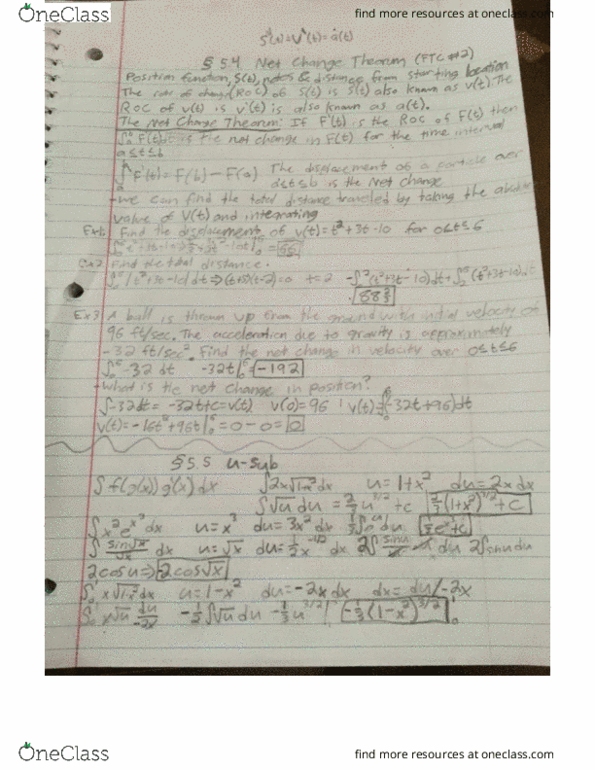 OneClass
find more resources at oneclass.com
S''(t)=V'(t)=a(t)
§ 5.4 Net Change Theorem (FTC #2)
Position function, S(t), notes & distance from starting location
The rate of change (RoC) of S(t) is S'(t) also known as v(t). The
RoC of v(t) is v'(t) is also known as a(t).
The Net Change Theorem: If F'(t) is the RoC of F(t) then
is the net change in F(t) for the time interval
a≤t≤b
∫F'(t)=F(b)-F(a) The displacement of a particle over
a≤t≤b is the Net change
-we can find the total distance traveled by taking the
value of V(t) and integrating
Ex1: Find the displacement of v(t)=t²+3t-10 for 0≤t≤6
Ex 2 Find the total distance.
⇒(t+5)(t-2)=0 t=2
Ex3 A ball is thrown up from the ground with initial velocity of
96 ft/sec. The acceleration due to gravity is approximately
-32 ft/sec². Find the net change in velocity over 0≤t≤6
∫-32 dt -32t = -192
-What is the net change in position?
∫-32dt = -32t+c=v(t) v(0)=96 v(t)=∫(-32t+96)dt
v(t)=-16t²+96t =0-0=0
§5.5 u-sub
∫f(g(x))g'(x)dx ∫2x√1+x² dx u=1+x² du=2xdx
∫√u du = 2/3 u^3/2 +c 2/3(1+x²)^3/2+c
∫x²e^x³dx u=x³ du=3x²dx 1/3∫e^u du
∫sin√x/√x dx u=√x du=1/2x^-1/2 dx 2∫sinu du
2cosu⇒-2cos√x
∫x√1-x² dx u=1-x² du=-2xdx dx=du/-2x
∫x√u du/-2x -1/2∫√u du -1/3u^3/2 -1/3(1-x²)^3/2
OneClass
find more resources at oneclass.com